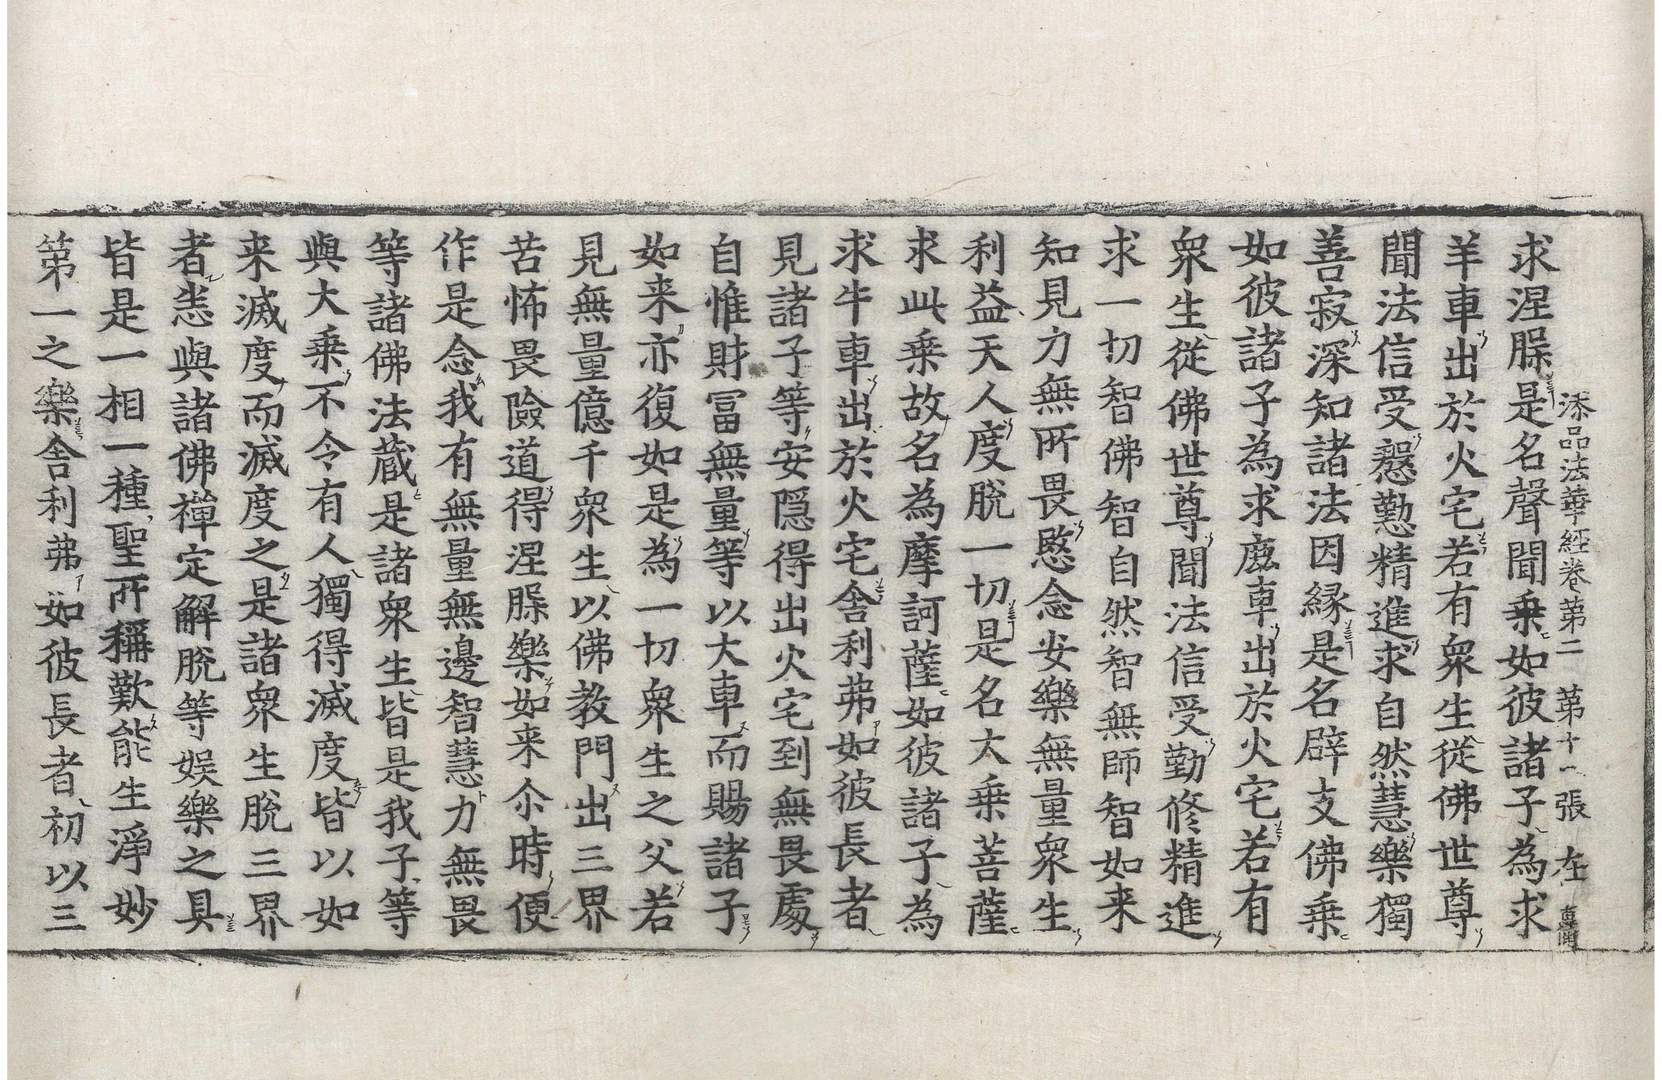 添品法華經卷第二 第十一張 左
求涅槃是名聲聞乗如彼諸子為求
羊車出於火宅若有衆生従佛世尊
聞法信受慇懃精進求自然慧樂獨
善寂深知諸法因縁是名辟支佛乗
如彼諸子為求鹿車出於火宅若有
衆生従佛世尊聞法信受勤修精進
求一切智佛智自然智無師智如来
知見力無所畏愍念安樂無量衆生
利益天人度脫一切是名大乗菩薩
求此乗故名為摩訶薩如彼諸子為
求牛車出於火宅舎利弗如彼長者
見諸子等安隱得出火宅到無畏處
自惟財冨無量等以大車而賜諸子
如来亦復如是為一切衆生之父若
見無量億千衆生以佛教門出三界
苦怖畏險道得涅槃樂如来尒時便
作是念我有無量無邊智慧力無畏
等諸佛法蔵是諸衆生皆是我子等
與大乗不令有人獨得滅度皆以如
来滅度而滅度之是諸衆生脫三界
者悉與諸佛禪定解脫等娛樂之具
皆是一相一種聖所稱歎能生淨妙
第一之樂舎利弗如彼長者初以三